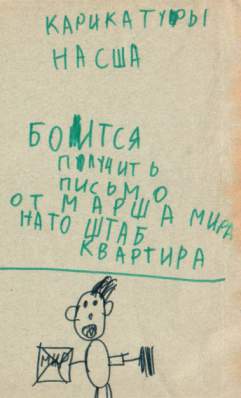 КАРИКАТУРЫ
НАСША
БОИТСЯ
ПОЛУЧИТЬ
ПИСЬМО
ОТ МАРША МИРА
НАТО ШТАБ
КВАРТИРА
МИР